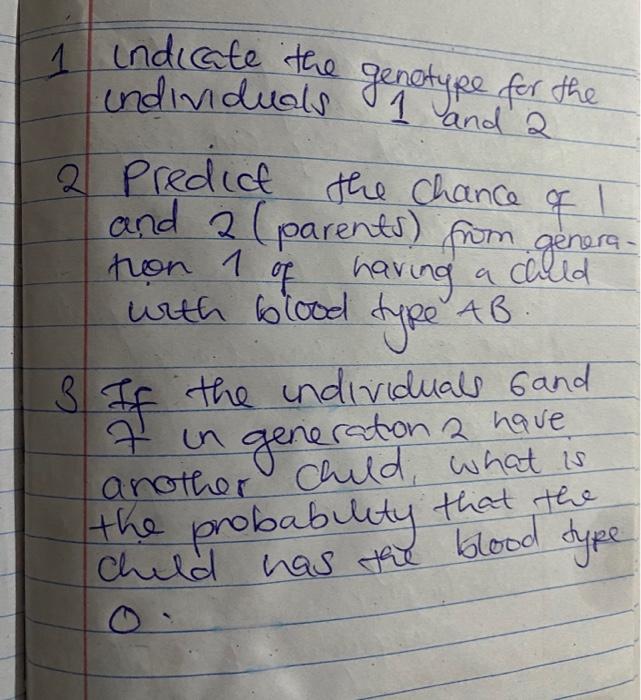 1 indicate the genotype for the
individuals 1 and 2
2 Predict the chance of 1
and 2 (parents) from genera-
tion 1 of having a child
with blood type AB.
3 If the individuals 6 and
7 in generation 2 have
another child, what is
the probability that the
child has the blood type
O.